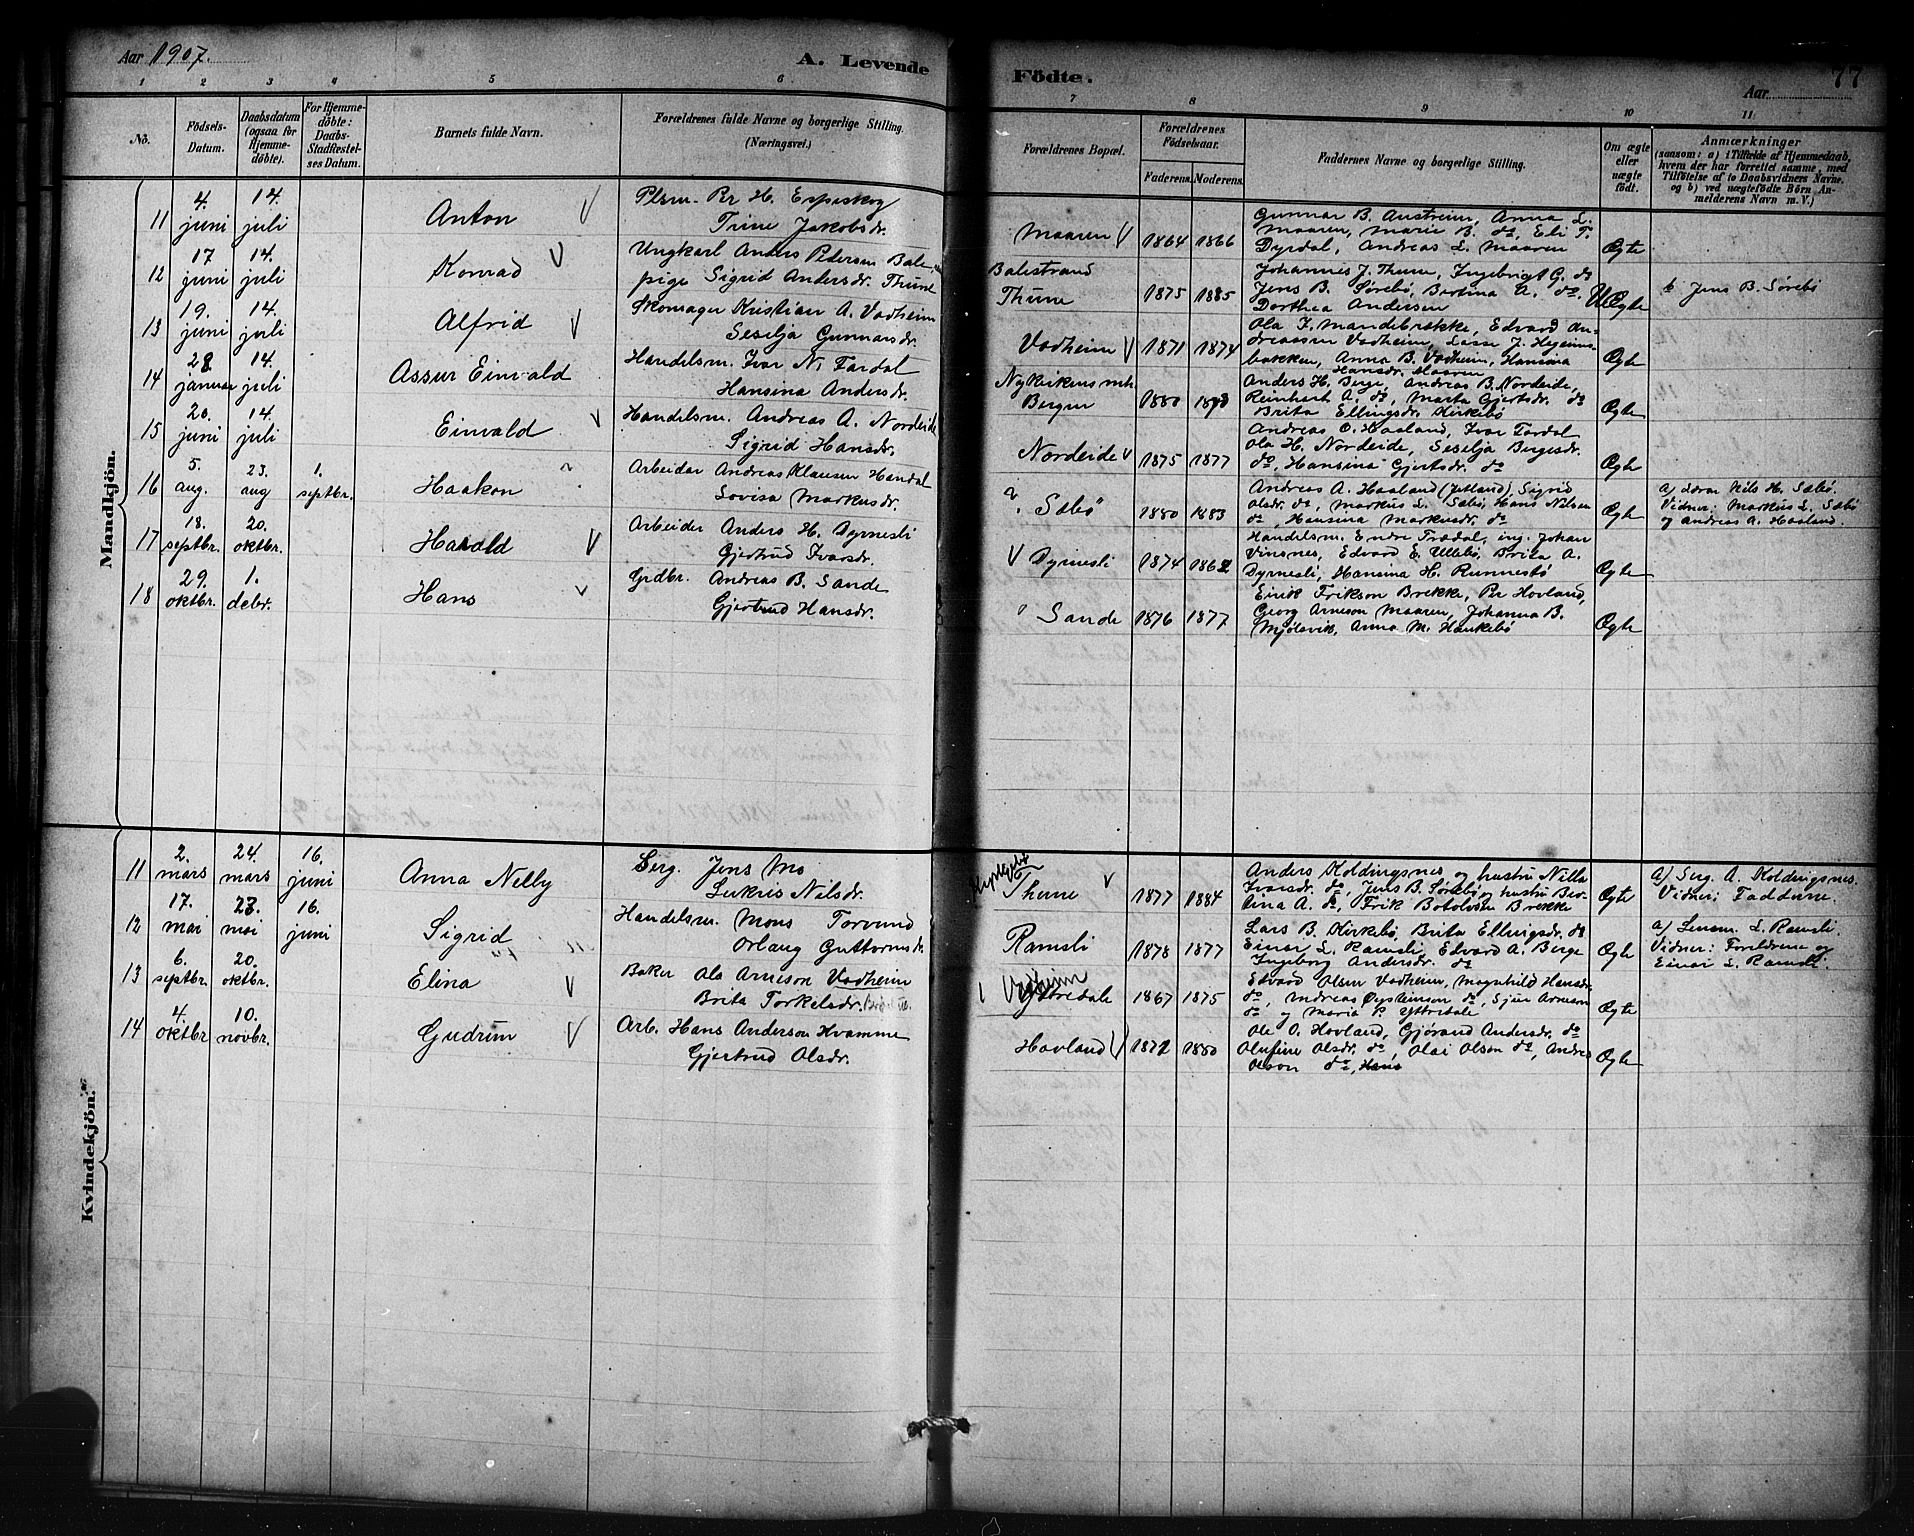 Aar 1907.
A. Levende
Födte.
77
Aar
1 2 3 4 5 6 7 8 9 10 11
No.
Födsels-
Datum.
Daabsdatum
(ogsaa for
Hjemme-
döbte).
For Hjemme-
döbte:
Daabs-
Stadfæstel-
ses Datum.
Barnets fulde Navn.
Forældrenes fulde Navne og borgerlige Stilling.
(Næringsvei.)
Forældrenes Bopæl.
Forældrenes
Födselsaar.
Faderens.
Moderens.
Faddernes Navne og borgerlige Stilling.
Om ægte
eller
uægte
födt.
Anmærkninger
(saasom: a) i Tilfælde af Hjemmedaab,
hvem der har forrettet samme, med
Tilföielse af to Daabsvidners Navne,
og b) ved uægtefödte Börn An-
melderens Navn m.V.)
Mandkjön.
11 4. juni 14. juli Anton V
Plsm. Per H. Espeskog
Trine Jakobsdr.
Maaren V 1864 1866
Gunnar B. Austreim, Anna L.
Maaren, Marie B. do, Eli T.
Dyrdal, Andreas L. Maaren
Ægte
12 17 juni 14. juli Konrad V
Ungkarl Anders Pedersen Bale
pige Sigrid Andersdr. Thune
Balestrand
Thune 1875 1885
Johannes J. Thune, Ingebrigt G. do
Jens B. Sørebø, Bertina A. do.
Dorthea Andersen
Uægte
b Jens B. Sørebø
13 19. juni 14. juli Alfrid V
Skomager Kristian A. Vadheim
Seselja Gunnarsdr.
Vadheim V 1871 1874
Ola J. Mandebrække, Edvard An-
dreassen Vadheim, Lasse J.
bakken, Anna B. Vadheim, Hansina
Hansdr. Maaren
Ægte
14 28 januar 14. juli Assur Einvald
Handelsm. Ivar N. Fardal
Hansina Andersdr.
Nykirkens mh.
Bergen 1880
Anders H. Berge, Andreas B. Nordeide,
Reinhart A. do, Marta Gjertsdr. do
Brita Ellingsdr. Kirkebø
Ægte
15 20. juni 14. juli Einvald V
Handelsm. Andreas A. Nordeide
Sigrid Hansdr.
Nordeide V 1875 1877
Andreas O. Haaland, Ivar Fardal
Ola H. Nordeide, Seselja Bergesdr.
do, Hansina Gjertsdr. do
Ægte
16 5. aug. 23. aug 1. septbr. Haakon
Arbeider Andreas Klausen Handal
Lovisa Markusdr.
Sæbø 1880 1883
Andreas A. Haaland (Jetland) Sigrid
Olsdr. do, Markus L. Sæbø, Hans Nilsen
do, Hansina Markusdr. do
Ægte
a) Lærer Nils H. Sæbø.
Vidner: Markus L. Sæbø
og Andreas A. Haaland.
17 18. septbr. 20. oktbr. Harald V
Arbeider Anders H. Dyrnesli
Gjertrud Ivarsdr.
V Dyrnesli 1874 1862
Handelsm. Endre Trædal, ing. Johan
Vinsnes, Edvard E. Ullebø, Brita A.
Dyrnesli, Hansina H. Runnestø
Ægte
18 29. oktbr. 1. debr. Hans V
Grdbr. Andreas B. Sande
Gjertrud Hansdr.
Sande 1876 1877
Eirik Erikson Brekke, Per Hovland,
Georg Arneson Maaren, Johanna B.
Mjølsvik, Anna M. Haukebø
Ægte
Kvindekjön.
11 2. mars 24. mars 16. juni Anna Nelly
Serg. Jens Mo
Lukris Nilsdr.
Thune V 1877 1884
Anders Koldingsnes og hustru Nilla
Ivarsdr. do, Jens B. Sørebø og hustru Ber-
tina A. do, Erik Botolvsen Brekke
Ægte
a) Serg. A. Koldingsnes.
Vidner: Fadderne.
12 17. mai 23. mai 16. juni Sigrid
Handelsm. Mons Torvund
Orlaug Guttormsdr.
Ramsli 1878 1877
Lars B. Kirkebø Brita Ellingsdr. do
Einar L. Ramsli, Edvard A. Berge
Ingeborg Andersdr. do
Ægte
a) Lensm. L. Ramsli.
Vidner: Foreldrene og
Einar L. Ramsli.
13 6. septbr. 20. oktbr. Elina V
Baker Als Arneson Vadheim
Brita Torkelsdr.
Vadheim
Ytredale 1867 1875
Edvard Olsen Vadheim, Magnhild Hansdr.
do, Andreas Øysteinson do, Sjur Arneson
do og Maria P. Yttredale
Ægte
14 4. oktbr. 10. novbr. Gudrun V
Arb. Hans Anderson Kvamme
Gjertrud Olsdr.
Hovland V 1880
Ole O. Hovland, Gjørand Andersdr. do
Olufine Olsdr. do, Olai Olson do, Andreas
Olson do, Hans
Ægte